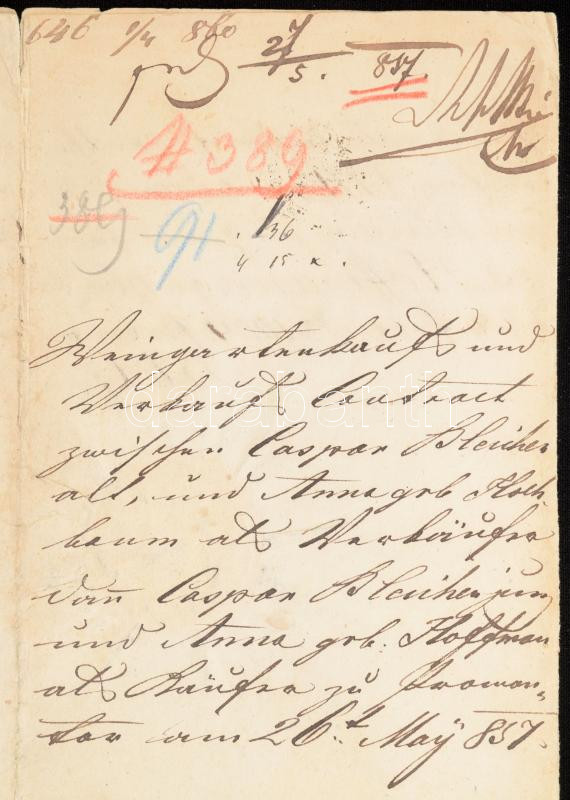 646 9/4 860 27/5. 857.
# 389
389 91 . 36
4 15 x.
Weingartenkaufs und
Verkaufs Contract
zwischen Caspar Bleicher
alt, und Anna geb Hol
baum als Verkäufer
dañ Caspar Bleicher jung
und Anna geb: Hoffman
als Käufer zu Promon=
tor am 26t May 857.
darabanth